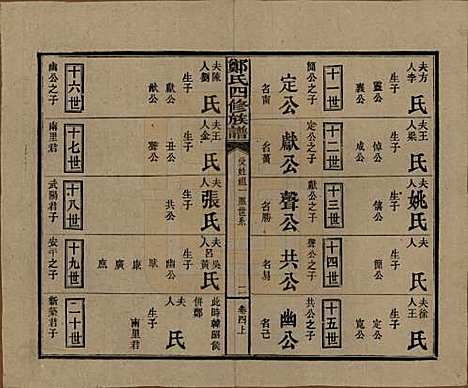 十一世
簡公之子
定公
名甯
夫方
人李
氏
生子
靈公
襄公
十二世
定公之子
獻公
名蠆
夫王
人梁
氏
生子
悼公
成公
十三世
獻公之子
聲公
名勝
夫
人
姚氏
生子
僖公
十四世
聲公之子
共公
名易
夫
人
氏
生子
簡公
十五世
共公之子
幽公
名己
夫徐
人王
氏
生子
寬公
鄭氏四修族譜
受姓祖一照世系
二
卷四上
十六世
幽公之子
夫陳
人劉
氏
生子
獻公
十七世
南里君
夫王
人金
氏
生子
丑公
十八世
武陽君子
夫
人
張氏
生子
共公
十九世
安平之子
夫吳
人呂黃
氏
生子
幽公
康
廣
庶
二十世
新築君子
此時韓昭侯
併鄭
夫
人
氏
生子
南里君